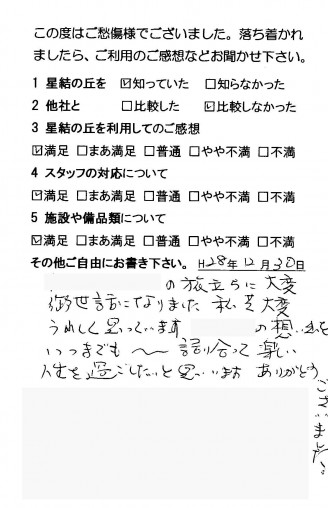 この度はご愁傷様でございました。落ち着かれ
ましたら、ご利用のご感想などお聞かせ下さい。
1 星結の丘を ☑知っていた □知らなかった
2 他社と □比較した ☑比較しなかった
3 星結の丘を利用してのご感想
☑満足 □まあ満足 □普通 □やや不満 □不満
4 スタッフの対応について
☑満足 □まあ満足 □普通 □やや不満 □不満
5 施設や備品類について
☑満足 □まあ満足 □普通 □やや不満 □不満
その他ご自由にお書き下さい。 H28年12月30日
の旅立ちに大変
御世話になりました 私共大変
うれしく思っています の想い出を
いつまでも〜語り合って楽しい
人生を過ごしたいと思います ありがとう
ございました!